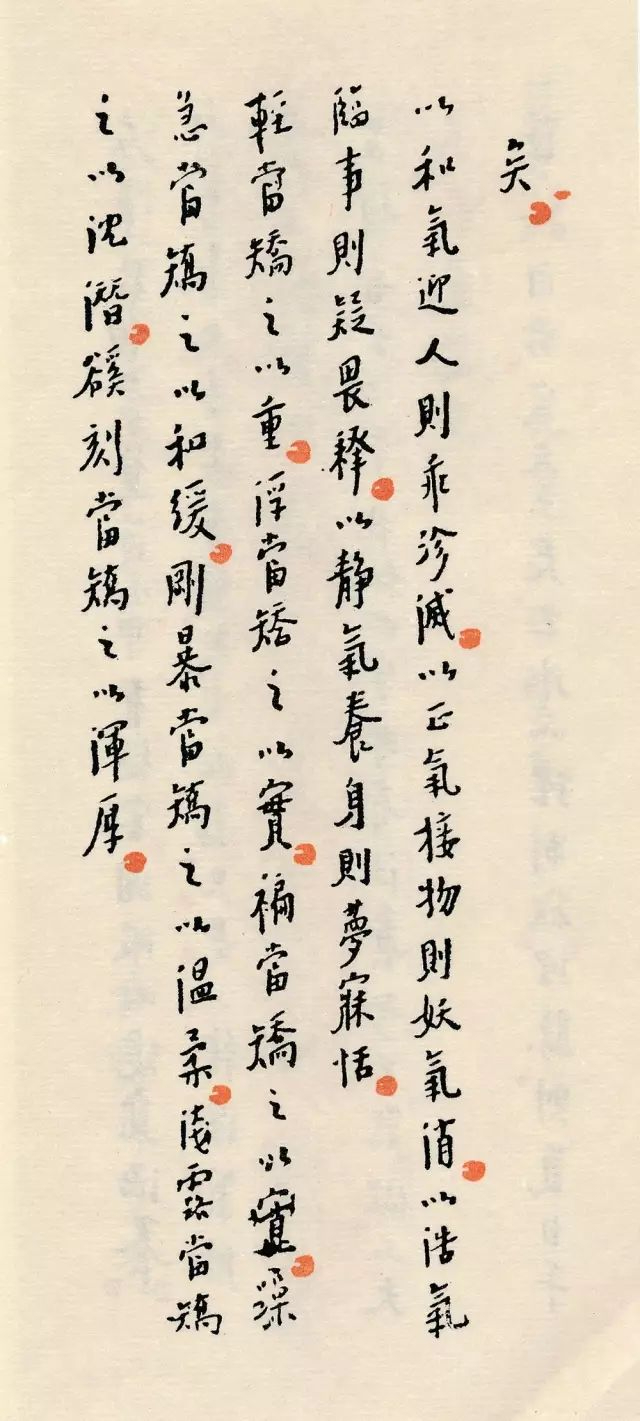 矣
以和氣迎人則乖沴滅以正氣接物則妖氣消以浩氣
臨事則疑畏釋以静氣養身則夢寐恬
輕當矯之以重浮當矯之以實褊當矯之以寬躁
急當矯之以和緩剛暴當矯之以温柔淺露當矯
之以沈潛谿刻當矯之以渾厚